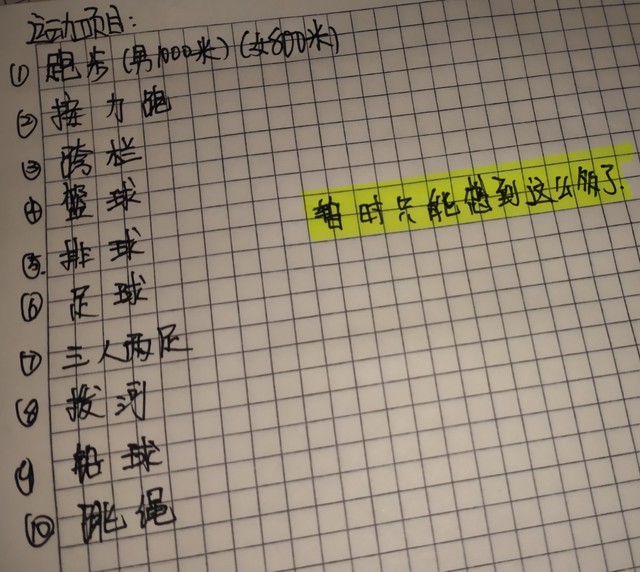 运动项目:
① 跑步(男1000米)(女800米)
② 接力跑
③ 跨栏
④ 篮球
⑤. 排球
⑥ 足球
⑦ 三人两足
⑧ 拔河
⑨ 铅球
⑩ 跳绳
暂时只能想到这么多了.